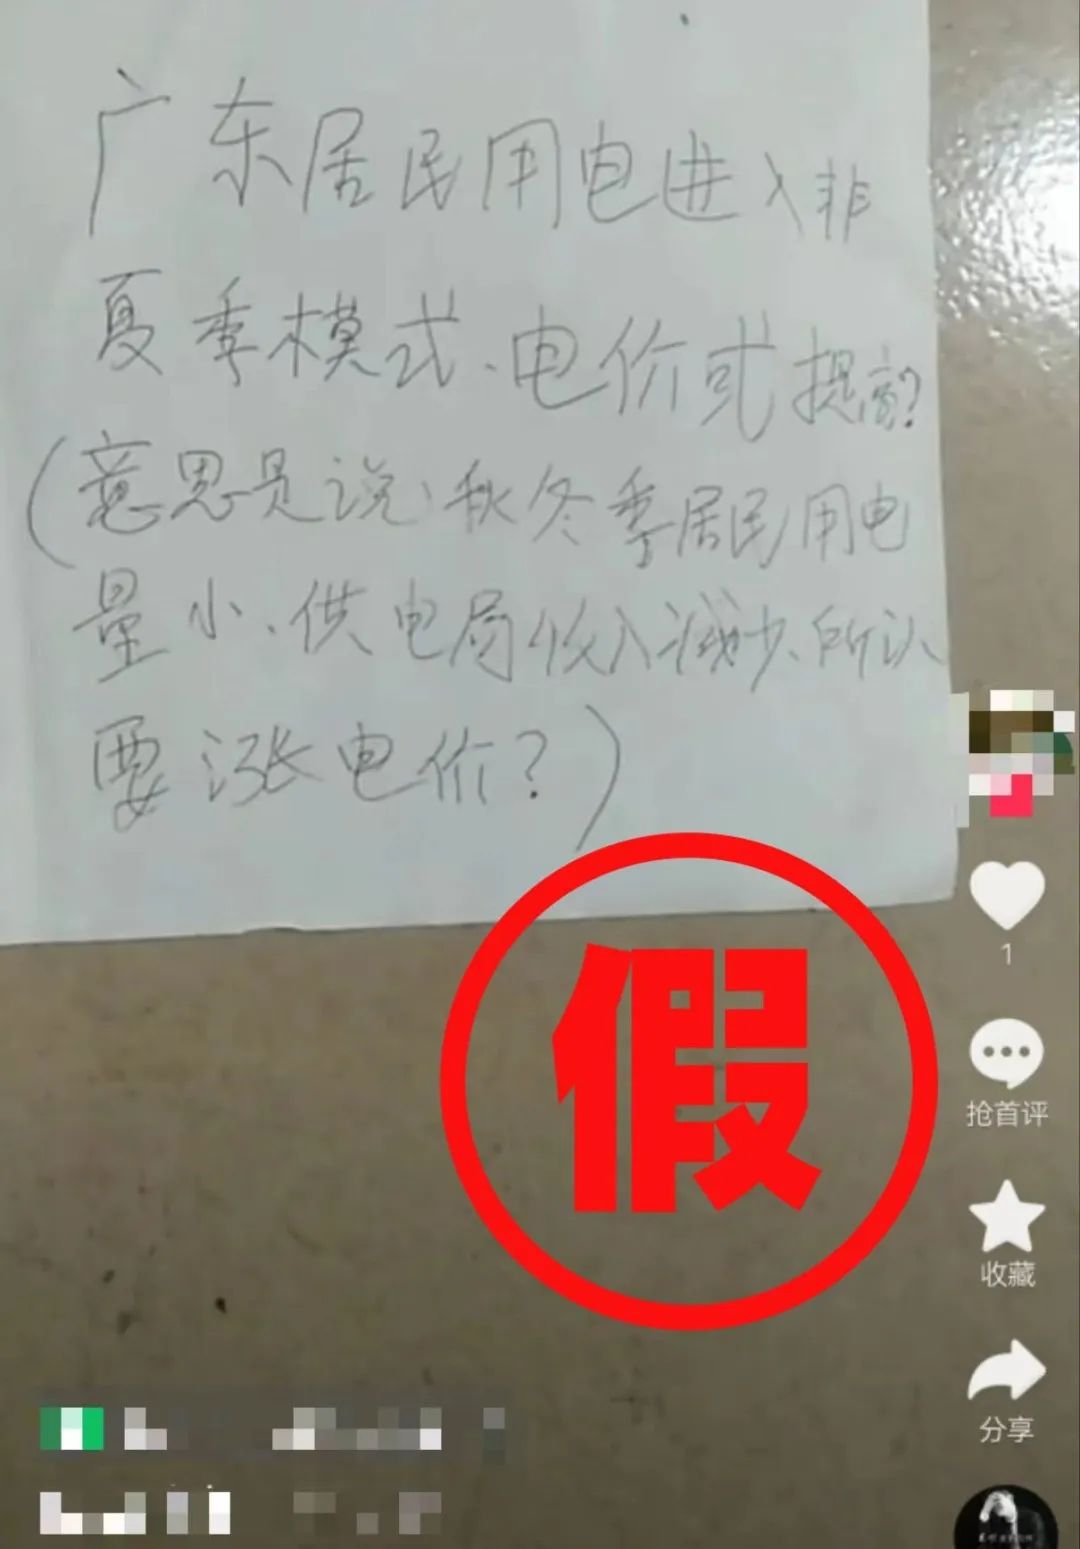 广东居民用电进入非
夏季模式、电价或提高?
(意思是说,秋冬季居民用电
量小、供电局收入减少、所以
要涨电价?)
假
1
抢首评
收藏
分享